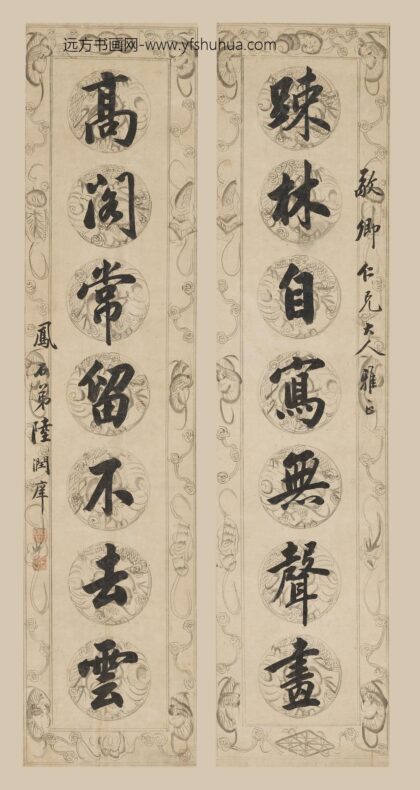 远方书画网-www.yfshuhua.com
敬卿仁兄大人雅正
踈林自寫無聲畫
高閣常留不去雲
鳳石弟陸潤庠